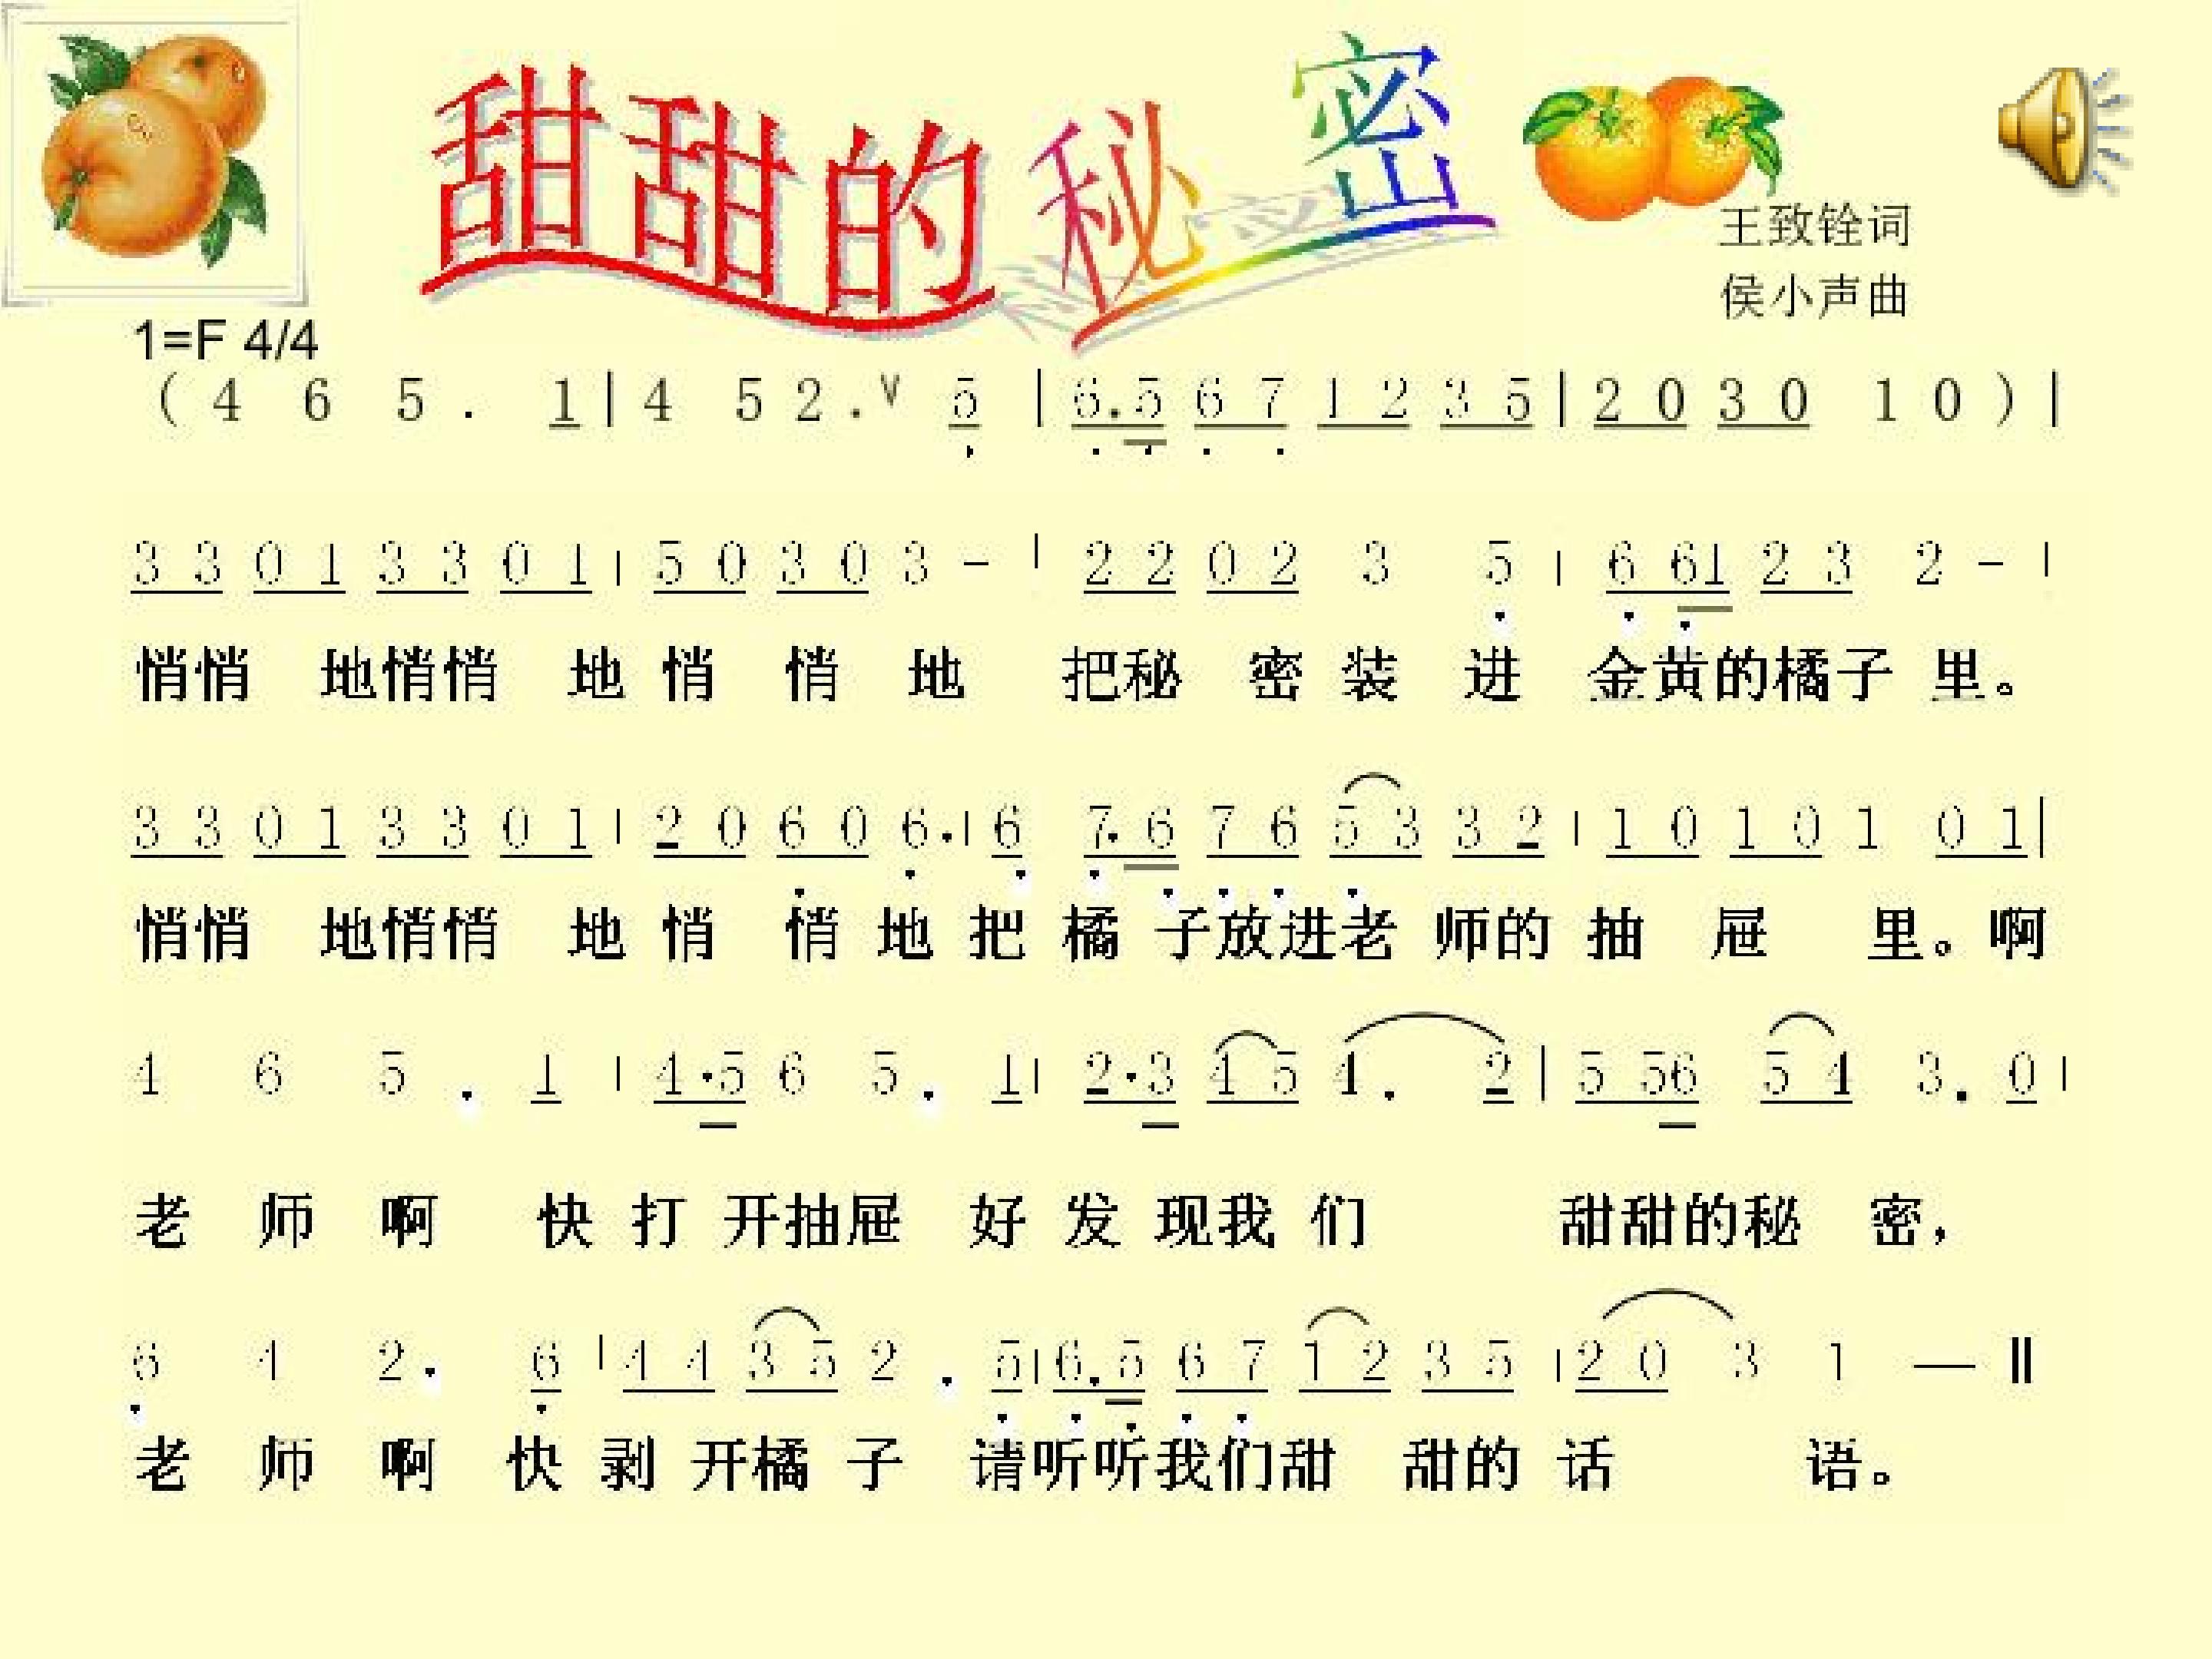 甜甜的秘密
王致铨词
侯小声曲
1=F 4/4
( 4 6 5 . 1 | 4 5 2 . ∨ 5 | 6. 5 6 7 1 2 3 5 | 2 0 3 0 1 0 ) |
3 3 0 1 3 3 0 1 | 5 0 3 0 3 - | 2 2 0 2 3 5 | 6 61 2 3 2 - |
悄悄 地悄悄 地 悄 悄 地 把秘 密 装 进 金黄的橘子 里。
3 3 0 1 3 3 0 1 | 2 0 6 0 6. | 6 7. 6 7 6 5 3 3 2 | 1 0 1 0 1 0 1 |
悄悄 地悄悄 地 悄 悄 地 把 橘 子放进老 师的 抽 屉 里。啊
4 6 5 . 1 | 4·5 6 5 . 1 | 2·3 4 5 4 . 2 | 5 56 5 4 3 . 0 |
老 师 啊 快 打 开抽屉 好 发 现我 们 甜甜的秘 密，
6 4 2 . 6 | 4 4 3 5 2 . 5 | 6. 5 6 7 1 2 3 5 | 2 0 3 1 — ‖
老 师 啊 快 剥 开橘 子 请听听我们甜 甜的 话 语。